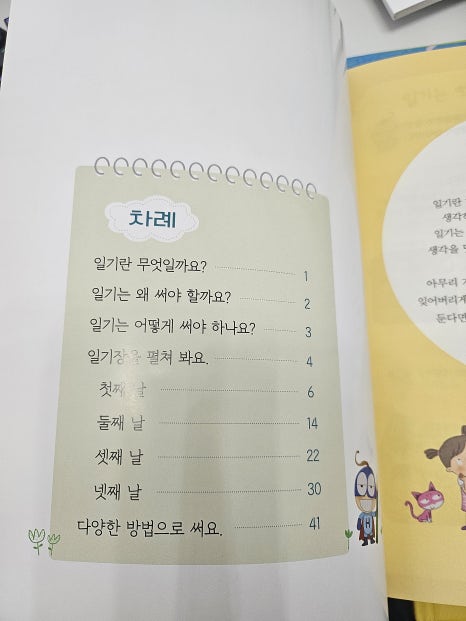 차례
일기란 무엇일까요? 1
일기는 왜 써야 할까요? 2
일기는 어떻게 써야 하나요? 3
일기장을 펼쳐 봐요. 4
첫째 날 6
둘째 날 14
셋째 날 22
넷째 날 30
다양한 방법으로 써요. 41
일기란
일기는
생각을
아무리
잊어버리게
둔다면
H